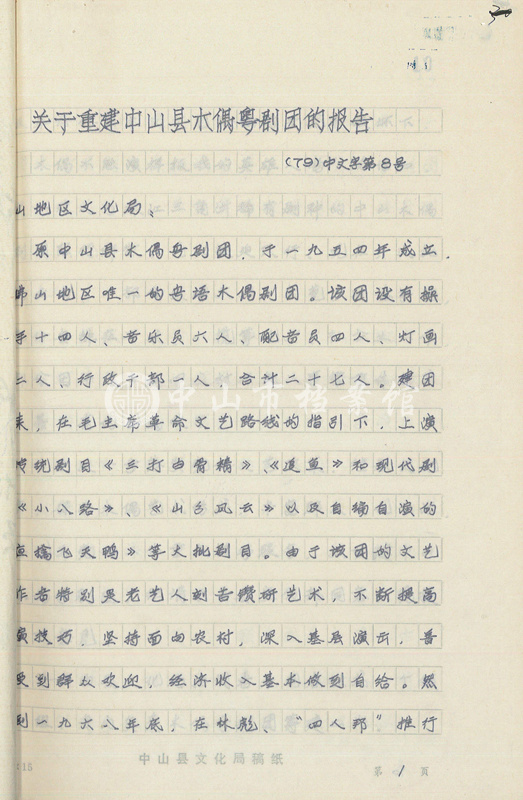 关于重建中山县木偶粤剧团的报告
(79)中文字第8号
山地区文化局:
原中山县木偶粤剧团,于一九五四年成立,
山地区唯一的粤语木偶剧团。该团设有操
手十四人、音乐员六人、配音员四人、灯画
二人、行政干部一人,合计二十七人。建团
来,在毛主席革命文艺路线的指引下,上演
传统剧目《三打白骨精》、《追鱼》和现代剧
《小八路》、《山乡风云》以及自编自演的
擒飞天鸭》等大批剧目。由于该团的文艺
作者特别是老艺人刻苦钻研艺术,不断提高
演技巧,坚持面向农村,深入基层演出,普
受到群众欢迎,经济收入基本做到自给。然
到一九六八年底,在林彪、“四人邦”推行
中山市档案馆
中山县文化局稿纸
:15
第 1 页